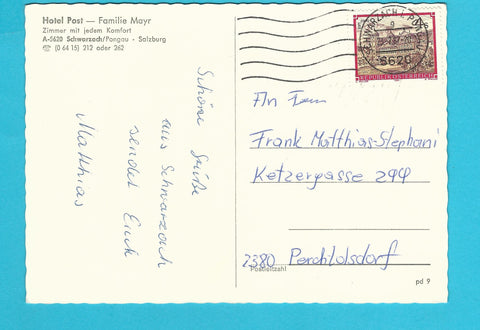 Hotel Post — Familie Mayr
Zimmer mit jedem Komfort
A-5620 Schwarzach/Pongau - Salzburg
☎ (0 64 15) 212 oder 262
Schöne Grüße
aus Schwarzach
sendet Euch
Matthias
5620
REPUBLIK ÖSTERREICH
An Fam
Frank Matthias-Stephani
Ketzergasse 294
2380 Perchtoldsdorf
Postleitzahl
pd 9